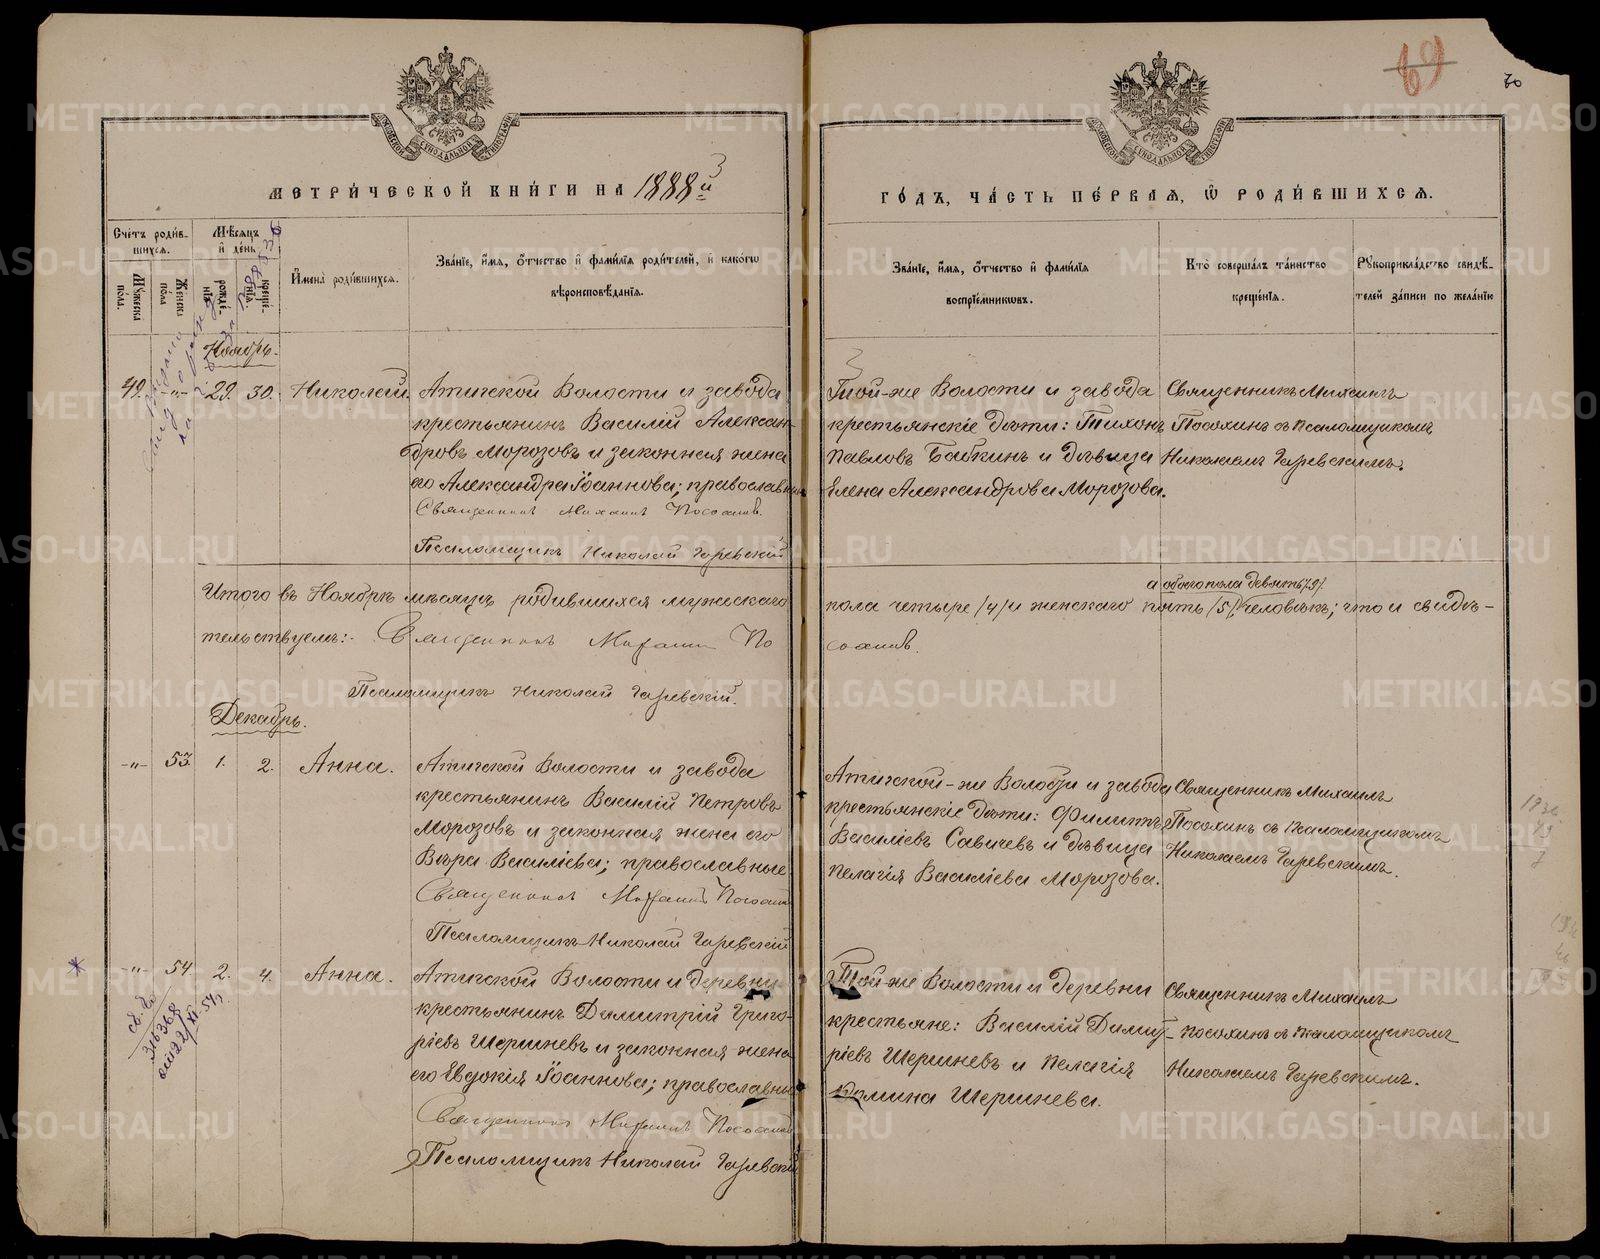 69
70
МЕТРИЧЕСКОЙ КНИГИ НА 1888й
ГОДЪ, ЧАСТЬ ПЕРВАЯ, Ѡ РОДИВШИХСЯ.
Счетъ родив-
шихся.
Мужеска пола.
Женска пола
Мѣсяцъ и день
рожде-
нія.
креще-
нія.
Имена родившихся.
Званіе, имя, отчество и фамилія родителей, и какого
вѣроисповѣданія.
Званіе, имя, отчество и фамилія
воспріемниковъ.
Кто совершалъ таинство
крещенія.
Рукоприкладство свидѣ-
телей записи по желанію
Ноябрь.
49. -"- 29. 30. Николай.
Атигской Волости и завода
крестьянинъ Василій Алексан-
дровъ Морозовъ и законная жена
его Александра Іоаннова; православн
Священникъ Михаилъ Посохинъ.
Псаломщикъ Николай Гаревскій
Той-же Волости и завода
крестьянскіе дѣти: Тихонъ
Павловъ Бабкинъ и дѣвица
Елена Александрова Морозова.
Священникъ Михаилъ
Посохинъ съ псаломщикомъ
Николаемъ Гаревскимъ.
Итого въ Ноябрѣ мѣсяцѣ родившихся мужескаго
пола четыре /4/ и женскаго пять /5/, человѣкъ; что и свидѣ-
а обоего пола девять /9/
тельствуемъ:- Священникъ Михаилъ По
сохинъ.
Псаломщикъ Николай Гаревскій.
Декабрь.
-"- 53. 1. 2. Анна.
Атигской Волости и завода
крестьянинъ Василій Петровъ
Морозовъ и законная жена его
Вѣра Василіева; православные
Священникъ Михаилъ Посохин
Псаломщикъ Николай Гаревскій
Атигской-же Волости и завода
крестьянскіе дѣти: Филиппъ
Василіевъ Савичевъ и дѣвица
Пелагія Василіева Морозова.
Священникъ Михаилъ
Посохинъ съ Псаломщикомъ
Николаемъ Гаревскимъ.
-"- 54 2. 4. Анна.
Атигской Волости и деревни
крестьянинъ Димитрій Григо-
ріевъ Шершневъ и законная жена
его Евдокія Іоаннова; православны
Священникъ Михаилъ Посохин
Псаломщикъ Николай Гаревскій
Той-же Волости и деревни
крестьяне: Василій Димит-
ріевъ Шершневъ и Пелагія
Домина Шершнева.
Священникъ Михаилъ
Посохинъ съ псаломщикомъ
Николаемъ Гаревскимъ.
METRIKI.GASO-URAL.RU